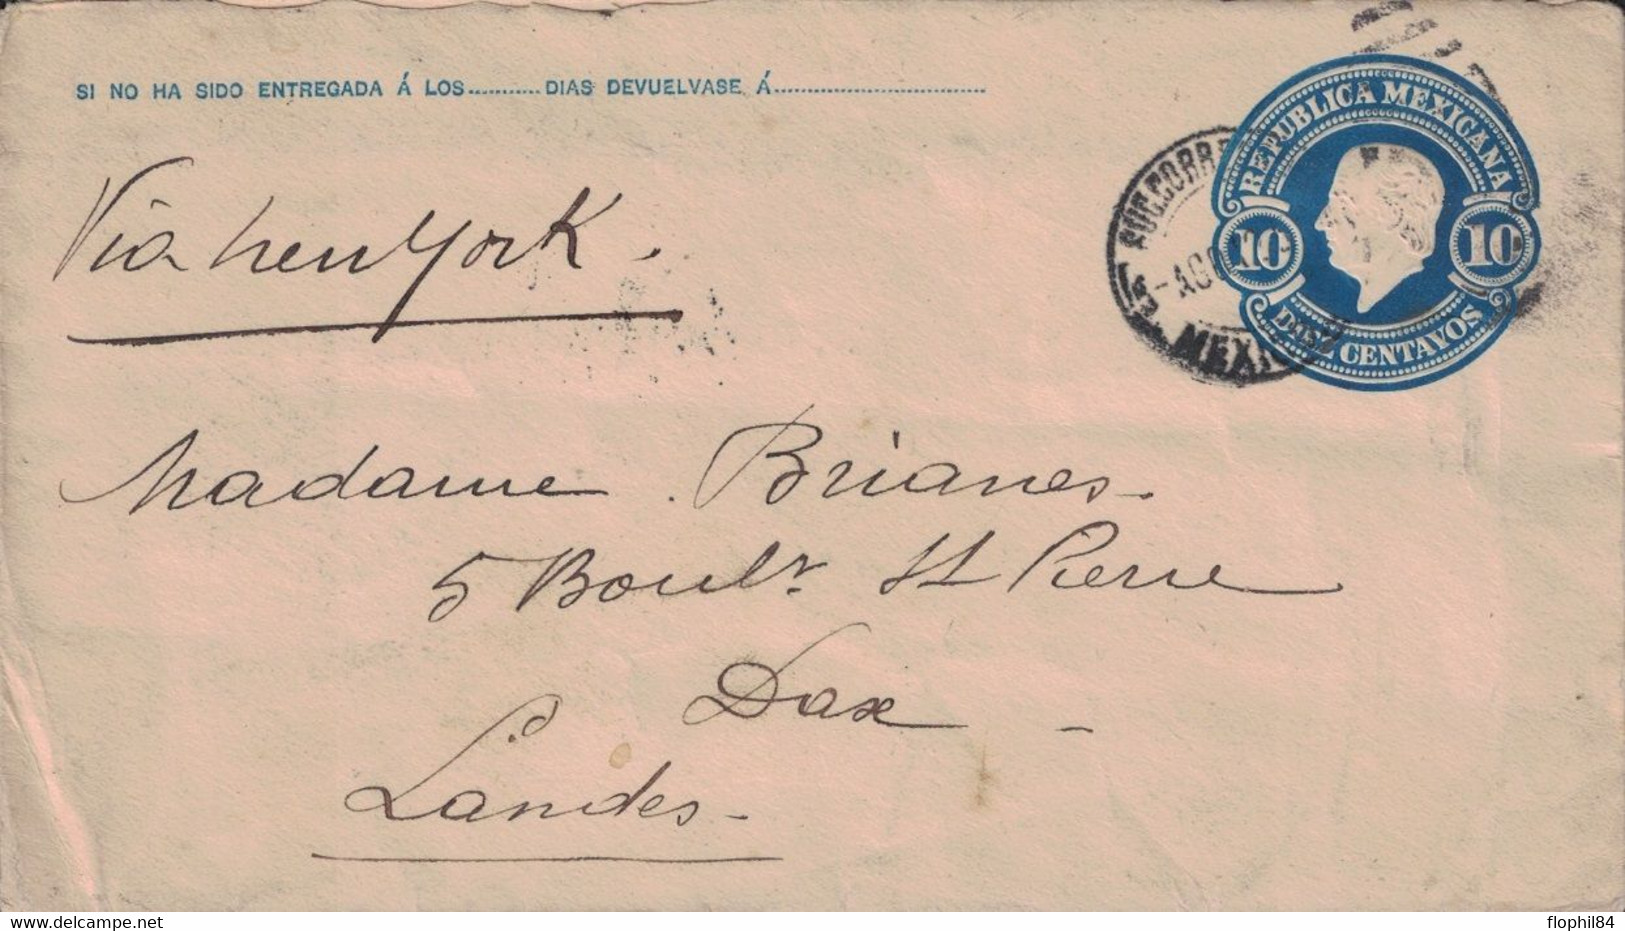 SI NO HA SIDO ENTREGADA Á LOS...........DIAS DEVUELVASE Á.................................
REPUBLICA MEXICANA
10 10
DIEZ CENTAVOS
SUC.CORRE
MEXICO
Via New York.
Madame Brianes.
5 Boulr. St Pierre
Dax -
Landes.
flophil84
www.delcampe.net